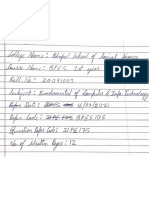 College Name: Bhopal School of Social Science
Course Name: B.P.E.S. 1st year
Roll No: 20091033
Subject: Fundamental of Computer & Info. Technology
Paper Date: 16/03/2021
Paper Code: BPES105
Question Paper Code: 21PE175
No. of Written Pages: 12